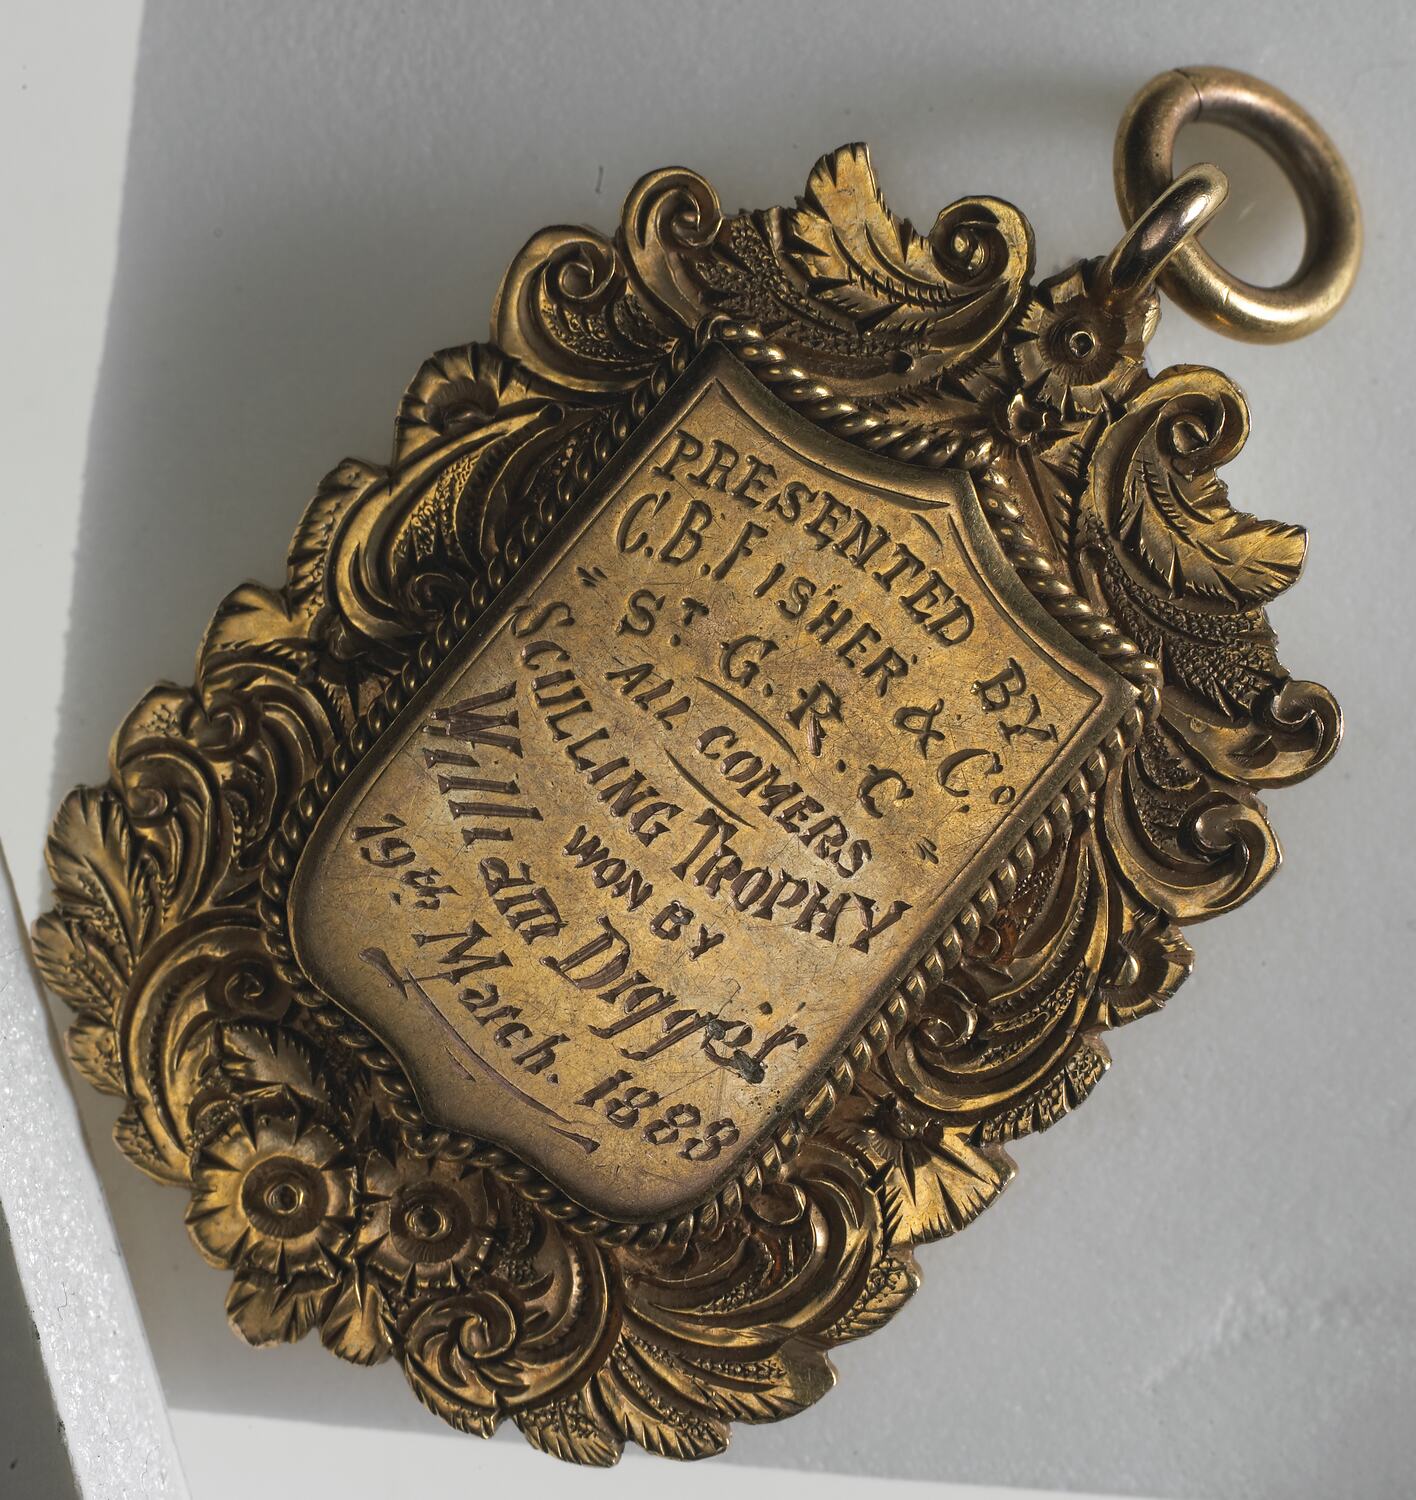 PRESENTED BY
C.B. FISHER & Co
" ST G. R. C "
ALL COMERS
SCULLING TROPHY
WON BY
William Digger
19th March. 1888